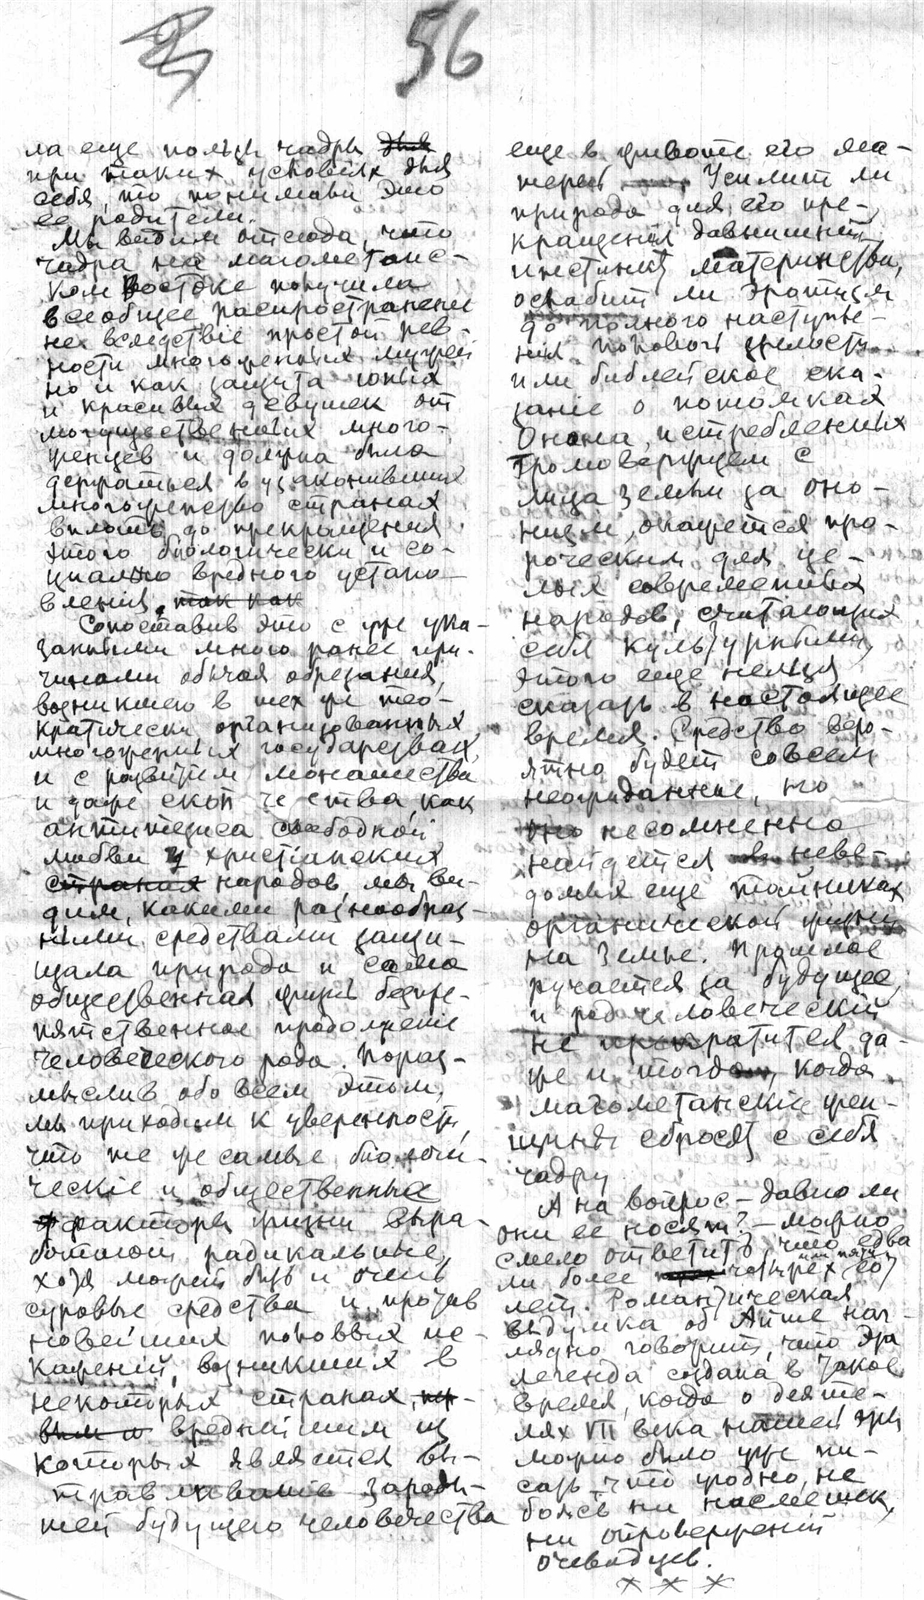 56
ла еще пользы чадры
при таких условиях для
себя, то понимали это
ее родители.
Мы видим отсюда, что
чадра на магометанс-
ком Востоке получила
всеобщее распространение
не вследствіе простой рев-
ности многоженных мужей
но и как защита юных
и красивых девушек от
могущественных много-
женцев и должна была
держаться в узаконивших
многоженство странах
вплоть до прекращения
этого биологически и со-
циально вредного устано-
вления, так как
Сопоставив это с уже ука-
занными много ранее при-
чинами обычая обрезания,
возникшего в тех же тео-
кратически организованных
многоженных государствах,
и с развитием монашества
и даже скопчества как
антитезиса свободной
любви у христіанских
странах народов, мы ви-
дим, какими разнообраз-
ными средствами защи-
щала природа и сама
общественная жизнь беспре-
пятственное продолжение
человеческого рода. Пораз-
мыслив обо всем этом,
мы приходим к уверенности,
что те же самые биологи-
ческіе и общественные
факторы жизни выра-
ботают радикальные,
хотя может быть и очень
суровые средства и против
новейших половых ис-
кажений, возникших в
некоторых странах,
вреднейшим из
которых является вы-
травливаніе зароды-
шей будущего человечества
еще в животе его ма-
терей. Усилит ли
природа для его пре-
кращения давнишний
инстинкт материнства,
ослабит ли эротизм
до полного наступле-
ния половой зрелости
или библейское ска-
заніе о потомках
Онана, истребленных
Громовержцем с
лица земли за она-
низм, окажется про-
роческим для це-
лых современных
народов, считающих
себя культурными,
этого еще нельзя
сказать в настоящее
время. Средство веро-
ятно будет совсем
неожиданное, но
оно несомненно
найдется в неве-
домых еще тайниках
органической жизни
на Земле. Прошлое
ручается за будущее,
и род человеческій
не прекратится да-
же и тогда, когда
магометанскіе жен-
щины сбросят с себя
чадру.
А на вопрос – давно ли
они ее носят? – можно
смело ответить, что едва
ли более четырех или пяти сот
лет. Романтическая
выдумка об Айше наг-
лядно говорит, что эта
легенда создана в такое
время, когда о деяте-
лях VII века нашей эры
можно было уже пи-
сать что угодно, не
боясь ни насмешек,
ни опровержений
очевидцев.
× × ×